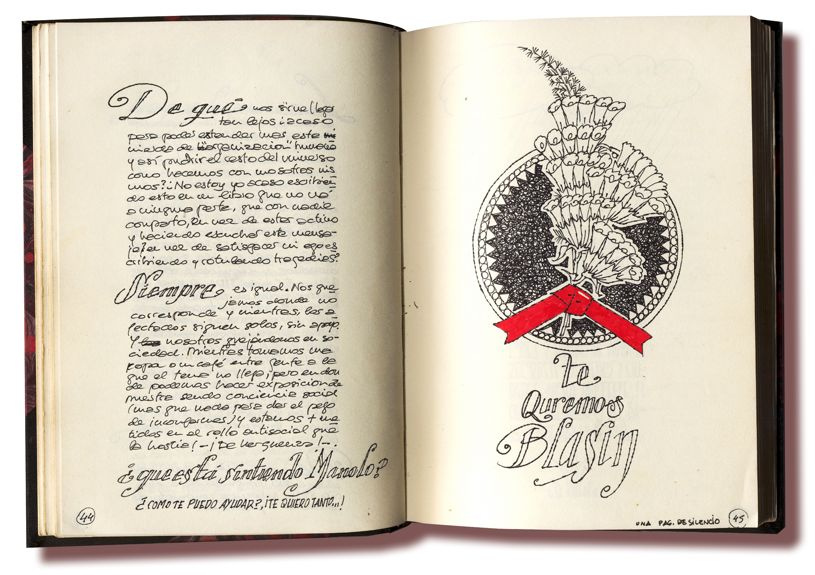 De qué nos sirve llegar
tan lejos ¿acaso
para poder estender mas esta
mierda de "organizacion" humana
y asi pudrir el resto del universo
como hacemos con nosotros mis
mos?¿No estoy yo acaso escribien
do esto en un libro que no va
a ninguna parte, que con nadie
comparto, en vez de estar activo
y haciendo escuchar este mensa-
je? en vez de satisfacer mi ego es
cribiendo y rotulando tragedias?
Siempre es igual. Nos que
jamos donde no
corresponde y mientras, los a
fectados siguen solos, sin apoyo.
Y nosotros quejándonos en so-
ciedad. Mientras tomamos una
copa o un café entre gente a la
que el tema no llega, pero en don
de podemos hacer exposición de
nuestra conciencia social
(mas que nada para dar el pego
de inconformes) y estamos + me
tidos en el rollo antisocial que
la hostia! - ¡De verguenza! -.
¿que está sintiendo Manolo?
¿COMO TE PUEDO AYUDAR?, ¡TE QUIERO TANTO...!
44
te
Quremos
Blasin
UNA PAG. DE SILENCIO
45